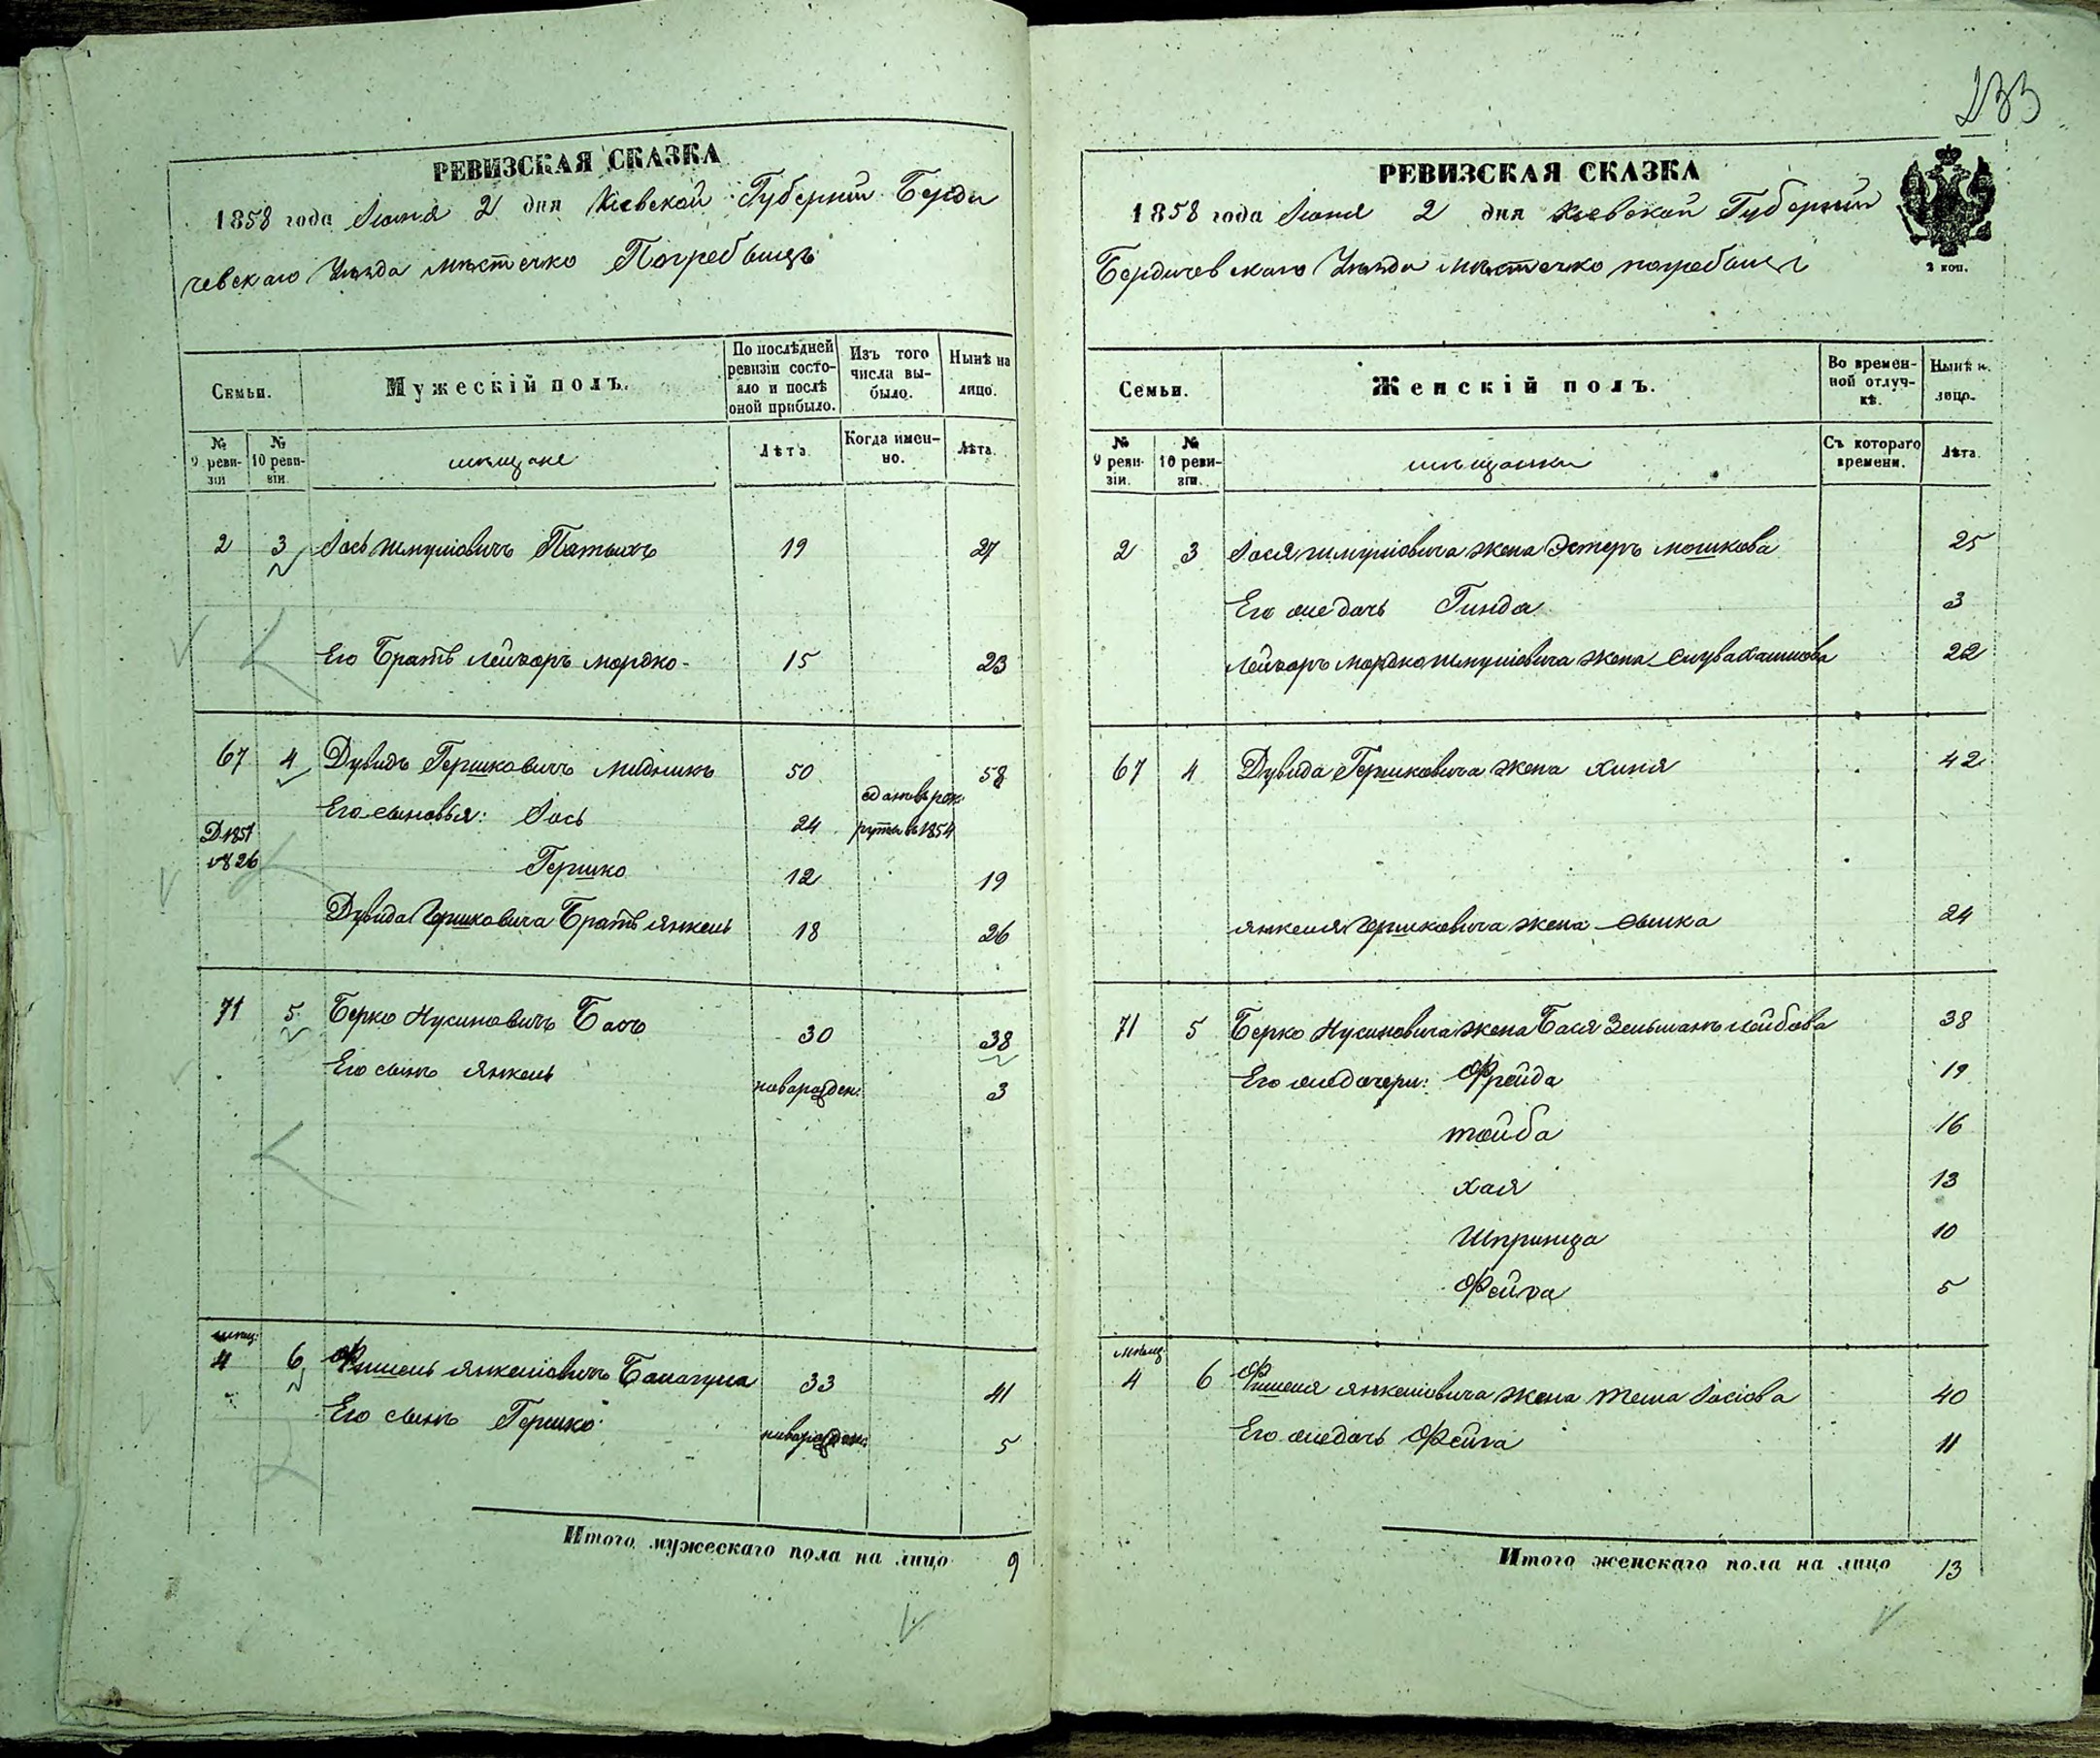 133
РЕВИЗСКАЯ СКАЗКА
1858 года Іюня 2 дня Кіевской Губерніи Берди
чевскаго Уѣзда мѣстечко Погребищъ
Семьи.
Мужескій полъ.
По послѣдней ревизіи состояло и послѣ оной прибыло.
Изъ того числа выбыло.
Нынѣ на лицо.
№ 9 ревизіи
№ 10 ревизіи.
мѣщане
Лѣта
Когда именно.
Лѣта.
2 3 Іось Шмуліовичъ 19 27
Его Братъ Лейзоръ Мордко- 15 23
67 4 Дувидъ Гершковичъ Мидникъ 50 58
Его сыновья: Іось 24 сданъ въ рек-
руты въ 1854
Д 1851
№ 26
Гершко 12 19
Дувида Гершковича Братъ Янкель 18 26
71 5 Берко Нусиновичъ 30 38
Его сынъ Янкель новорожден. 3
мѣщ:
4 6 Фишель Янкеліовичъ Балагула 33 41
Его сынъ Гершко новорожден. 5
Итого мужескаго пола на лицо 9
РЕВИЗСКАЯ СКАЗКА
1858 года Іюня 2 дня Кіевской Губерніи
Бердичевскаго Уѣзда мѣстечко погребищъ
2 коп.
Семьи.
Женскій полъ.
Во временной отлучкѣ.
Нынѣ н. лицо.
№ 9 ревизіи.
№ 10 ревизіи.
мѣщанки
Съ котораго времени.
Лѣта
2 3 Іося Шмуліовича жена Эстеръ Мошкова 25
Его же дочь Гинда 3
Лейзоръ Мордко Шмуліовича жена 22
67 4 Дувида Гершковича жена Хиня 42
Янкеля Гершковича жена 24
71 5 Берко Нусиновича жена Бася Зельманъ Лейбова 38
Его же дочери: Фрейда 19
Тойба 16
Хая 13
Шпринца 10
Фейга 5
мѣщ
4 6 Фишеля Янкеліовича жена Тема Іосіова 40
Его же дочь Фейга 11
Итого женскаго пола на лицо 13